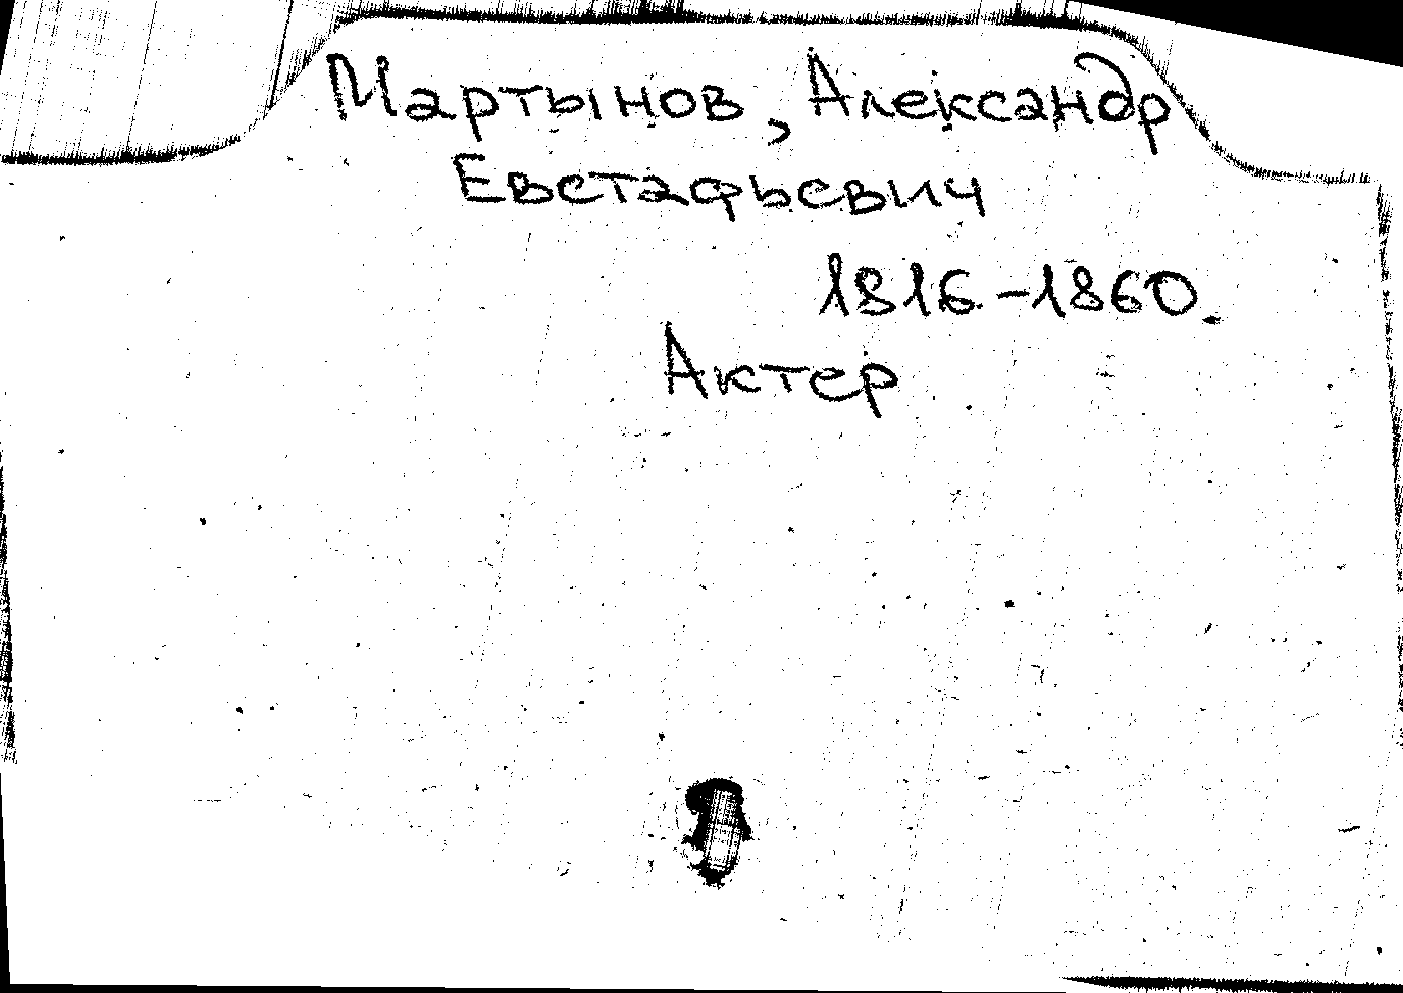 Мартынов, Александр
Евстафьевич
1816-1860.
Актер